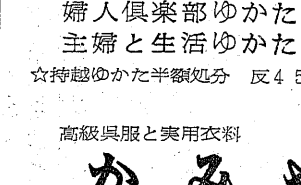 婦人倶楽部ゆかた
主婦と生活ゆかた
☆持越ゆかた半額処分　反45
高級呉服と実用衣料
かみ